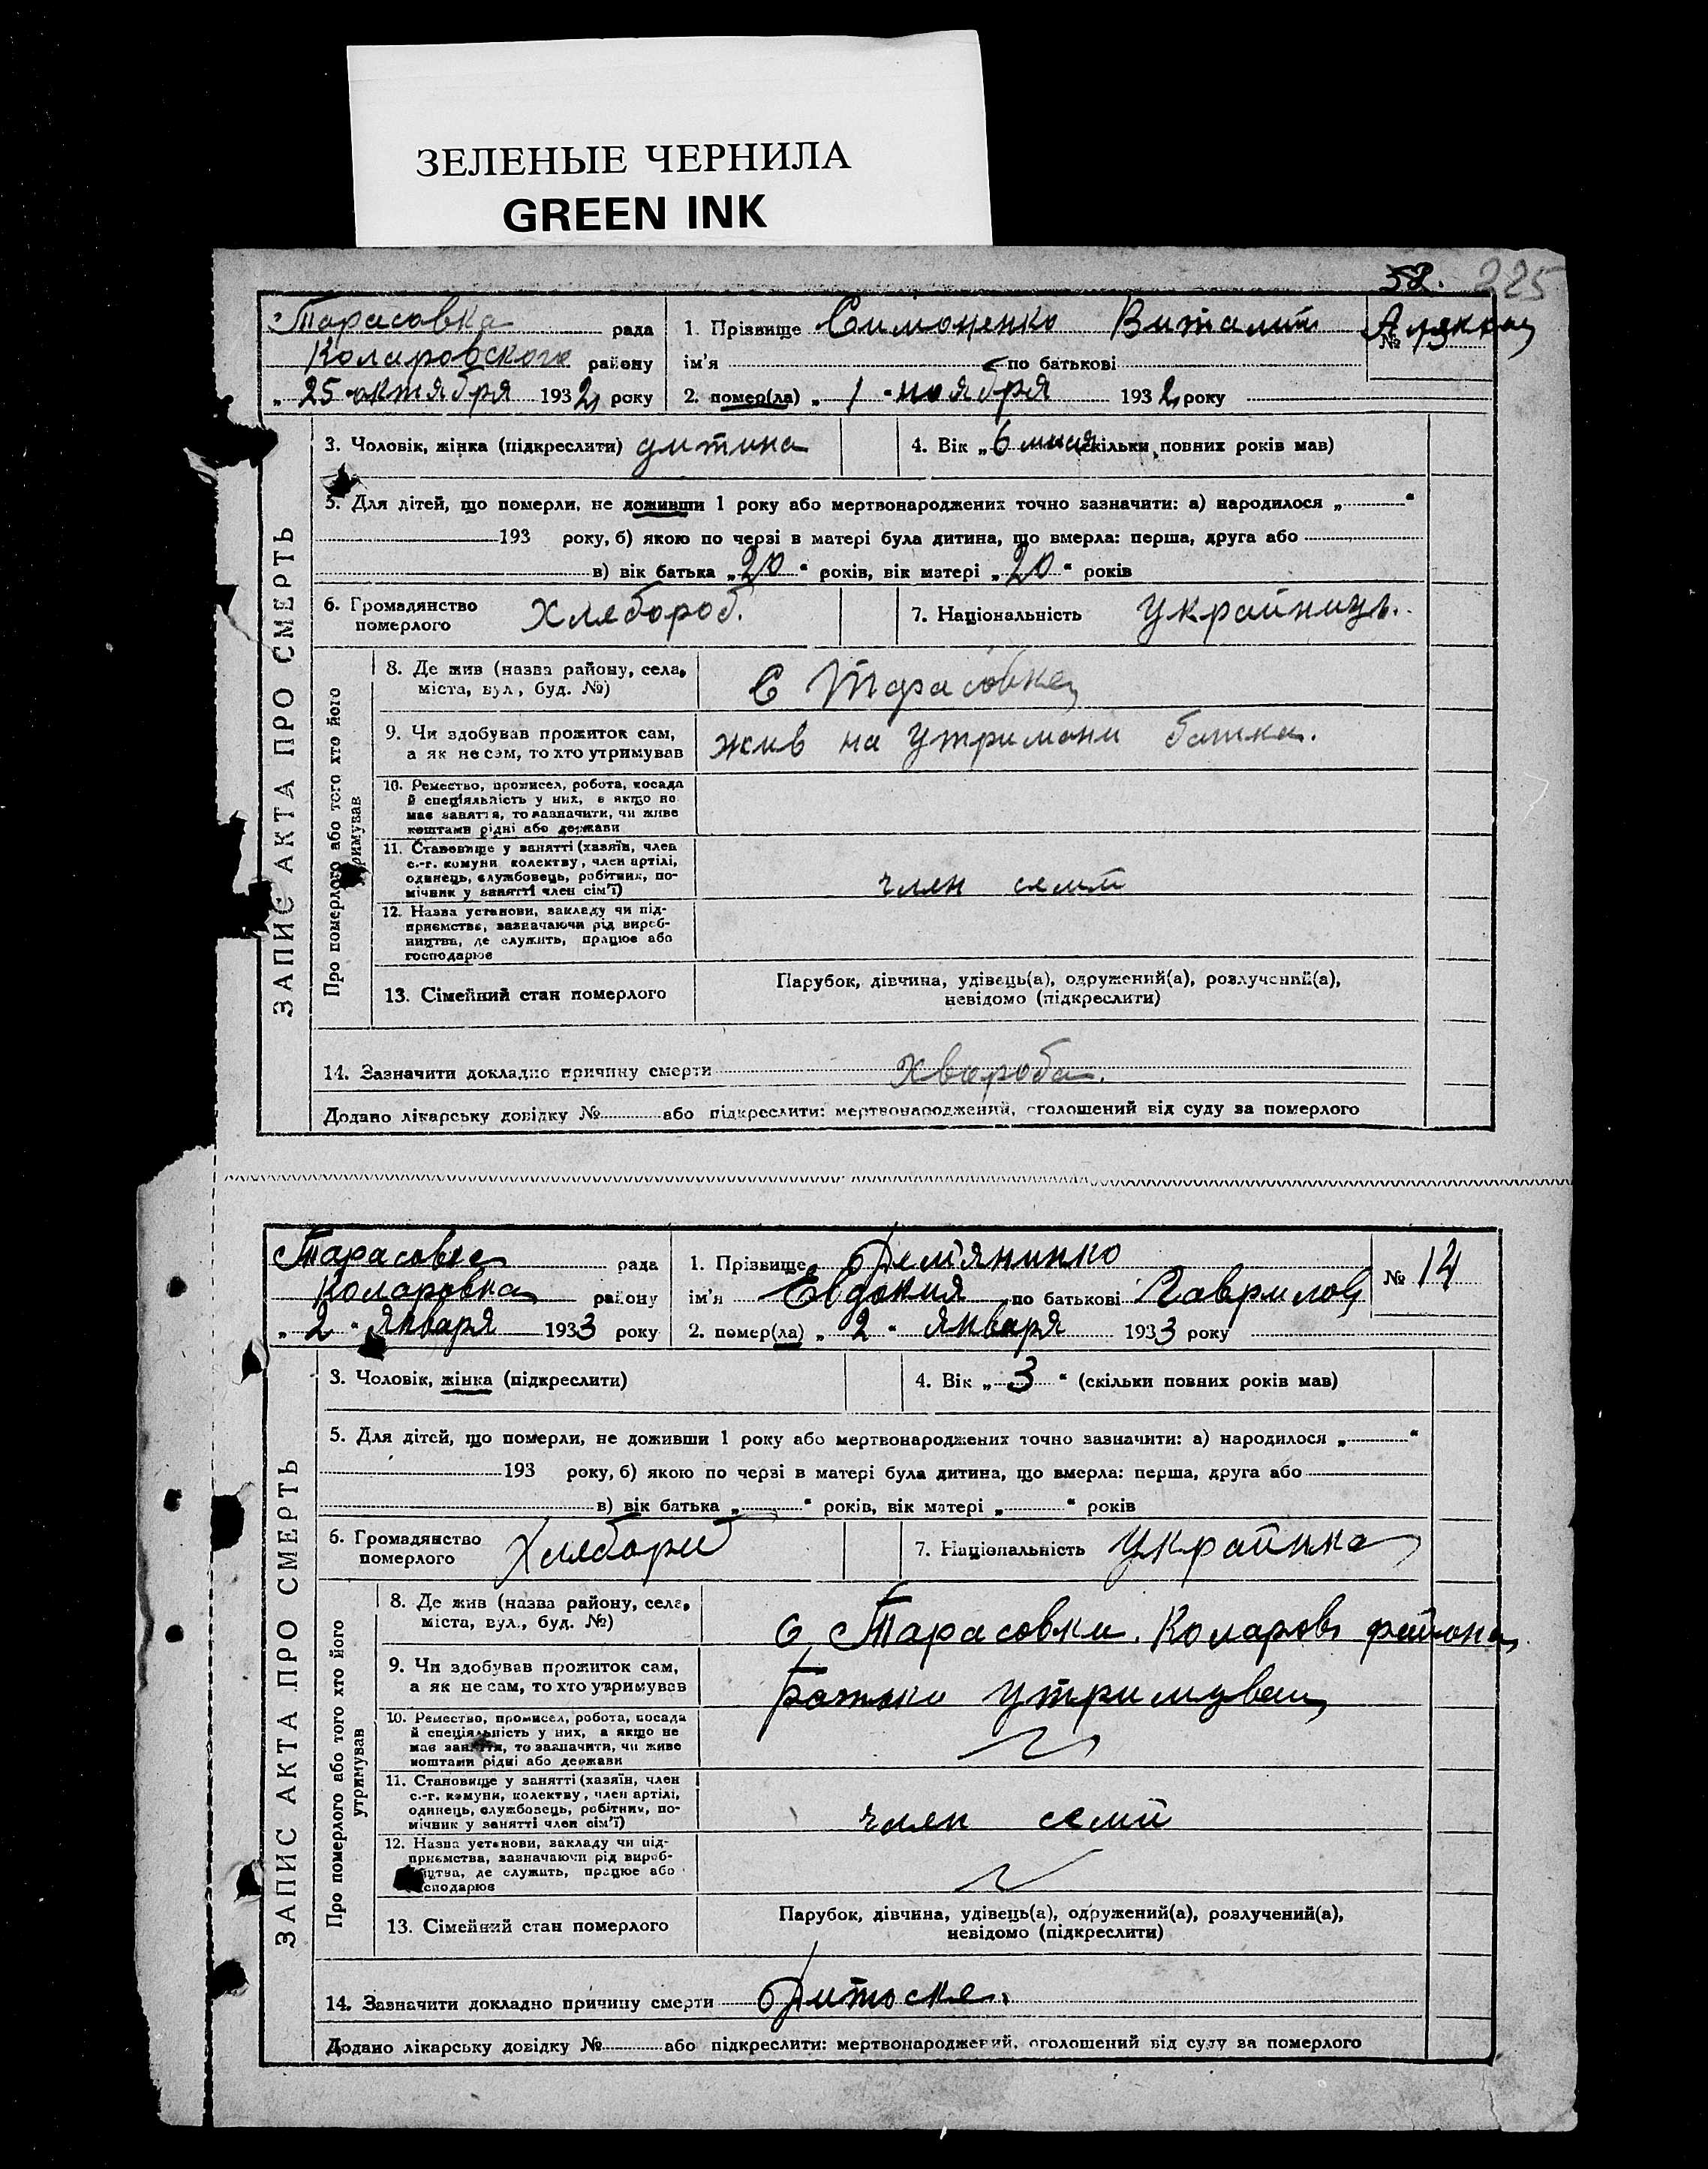 ЗЕЛЕНЫЕ ЧЕРНИЛА
GREEN INK
58. 225
Тарасовка рада
Коларовского району
„ 25 " октября 1932 року
1. Прізвище Симоненко Виталий
ім'я по батькові
№ 13
2. помер(ла) „ 1 " ноября 1932 року
ЗАПИС АКТА ПРО СМЕРТЬ
3. Чоловік, жінка (підкреслити) дитина
4. Вік „ 6 скільки повних років мав)
5. Для дітей, що померли, не доживши 1 року або мертвонароджених точно зазначити: а) народилося „ "
193 року, б) якою по черзі в матері була дитина, що вмерла: перша, друга або
в) вік батька „ 20 " років, вік матері „ 20 " років
6. Громадянство померлого Хлебороб.
7. Національність Україниць.
Про померлого або того хто його утримував
8. Де жив (назва району, села,
міста, вул., буд. №)
С Тарасовка
9. Чи здобував прожиток сам,
а як не сам, то хто утримував
жив на утримани батька.
10. Ремество, промисел, робота, посада
й спеціяльність у них, а якщо не
має заняття, то зазначити, чи живе
коштами рідні або держави
11. Становище у занятті (хазяїн, член
с.-г. комуни, колективу, член артілі,
одинець, службовець, робітник, по-
мічник у занятті член сім'ї)
член семии
12. Назва установи, закладу чи під-
приємства, зазначаючи рід вироб-
ництва, де служить, працює або
господарює
13. Сімейний стан померлого
Парубок, дівчина, удівець(а), одружений(а), розлучений(а),
невідомо (підкреслити)
14. Зазначити докладно причину смерти Хвороба.
Додано лікарську довідку № або підкреслити: мертвонароджений, оголошений від суду за померлого
Тарасовка рада
Коларовка району
„ 2 " Января 1933 року
1. Прізвище Демянинко
ім'я Евдокия по батькові Гаврилов
№ 14
2. помер(ла) „ 2 " Января 1933 року
ЗАПИС АКТА ПРО СМЕРТЬ
3. Чоловік, жінка (підкреслити)
4. Вік „ 3 " (скільки повних років мав)
5. Для дітей, що померли, не доживши 1 року або мертвонароджених точно зазначити: а) народилося „ "
193 року, б) якою по черзі в матері була дитина, що вмерла: перша, друга або
в) вік батька „ " років, вік матері „ " років
6. Громадянство померлого Хлебори
7. Національність Українка
Про померлого або того хто його утримував
8. Де жив (назва району, села,
міста, вул., буд. №)
С Тарасовки. Коларов района
9. Чи здобував прожиток сам,
а як не сам, то хто утримував
Батько утримував
10. Ремество, промисел, робота, посада
й спеціяльність у них, а якщо не
має заняття, то зазначити, чи живе
коштами рідні або держави
11. Становище у занятті (хазяїн, член
с.-г. комуни, колективу, член артілі,
одинець, службовець, робітник, по-
мічник у занятті член сім'ї)
член семи
12. Назва установи, закладу чи під-
приємства, зазначаючи рід вироб-
ництва, де служить, працює або
господарює
13. Сімейний стан померлого
Парубок, дівчина, удівець(а), одружений(а), розлучений(а),
невідомо (підкреслити)
14. Зазначити докладно причину смерти Дитоске.
Додано лікарську довідку № або підкреслити: мертвонароджений, оголошений від суду за померлого